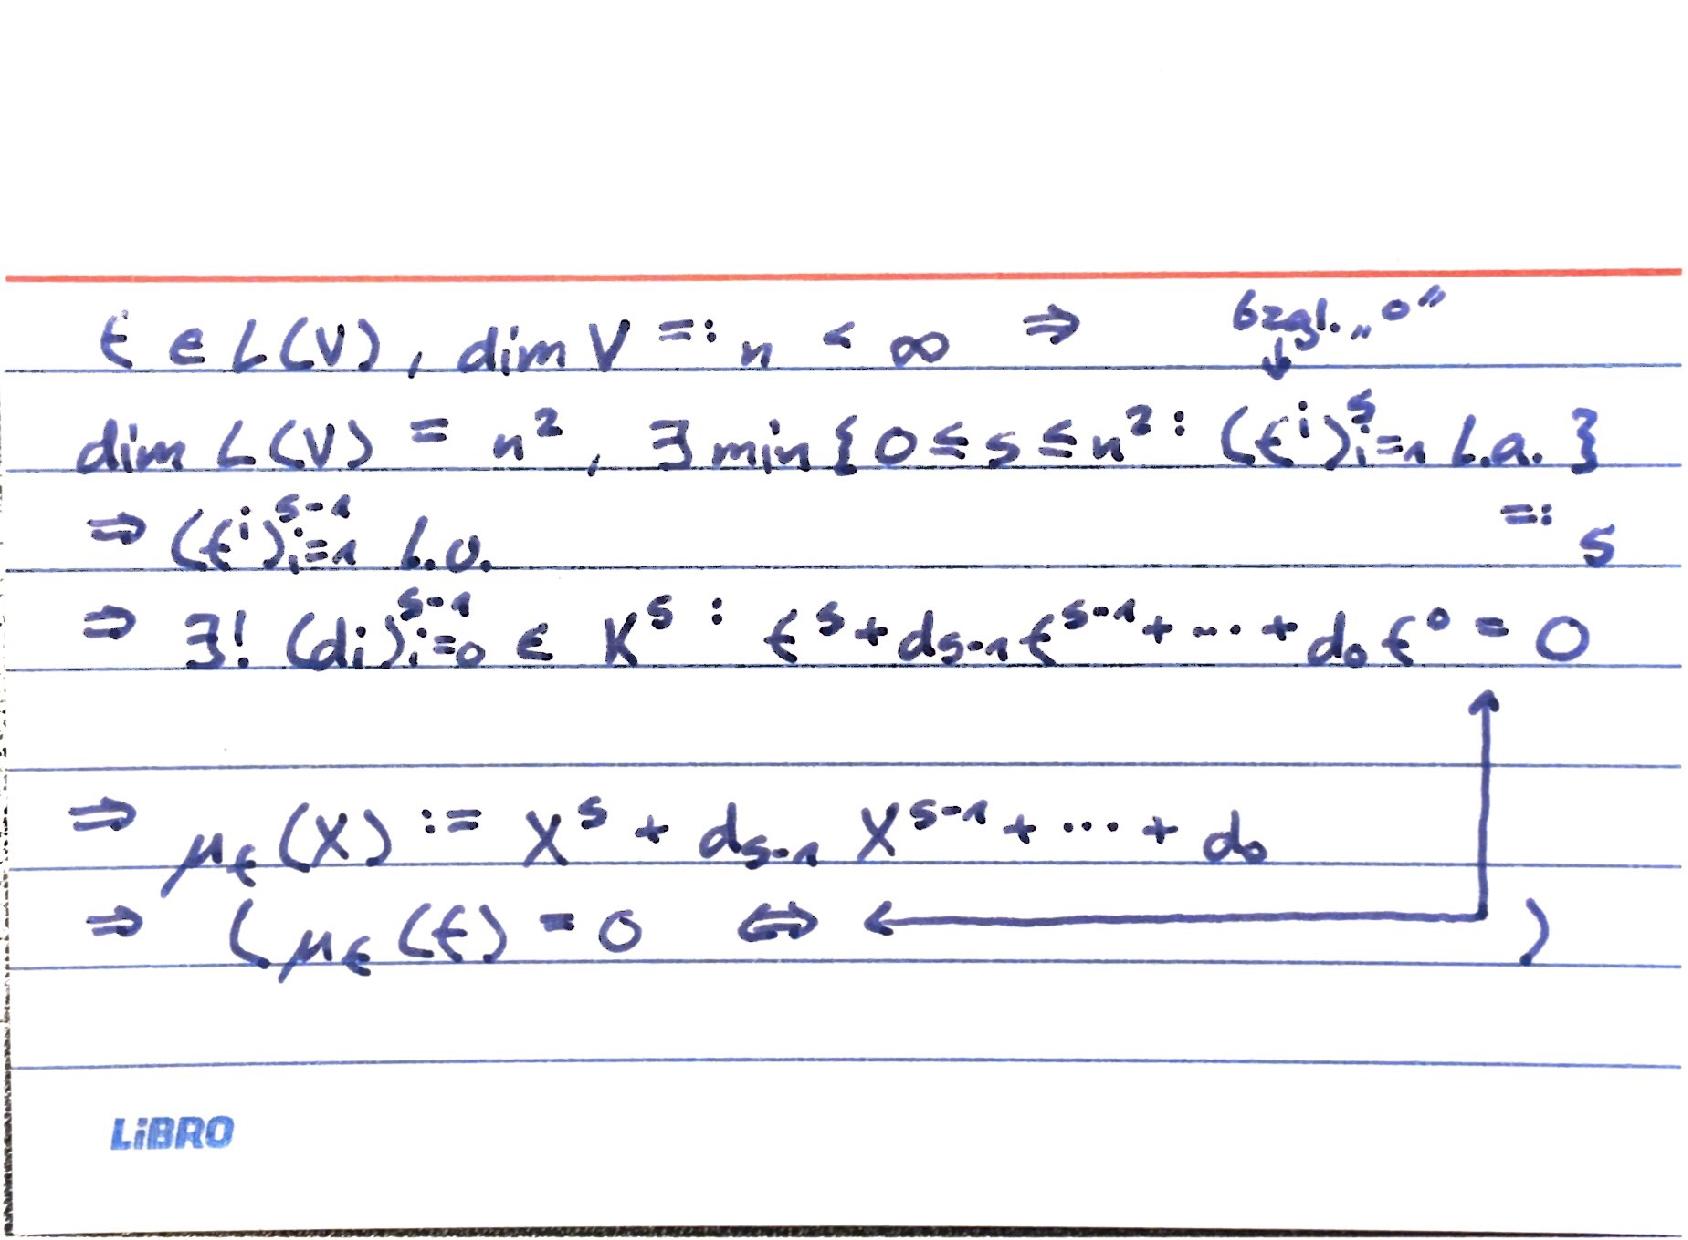 f ∈ L(V), dim V =: n < ∞ ⇒
bzgl. „∘“
↓
dim L(V) = n², ∃ min{0 ≤ s ≤ n² : (fⁱ)ˢᵢ₌₁ l.a.}
=: s
⇒ (fⁱ)ˢ⁻¹ᵢ₌₁ l.u.
⇒ ∃! (dᵢ)ˢ⁻¹ᵢ₌₀ ∈ Kˢ : fˢ + dₛ₋₁fˢ⁻¹ + ... + d₀f⁰ = 0
⇒ μ_f(X) := Xˢ + dₛ₋₁ Xˢ⁻¹ + ... + d₀
⇒ (μ_f(f) = 0 ⇔ ←)
LiBRO